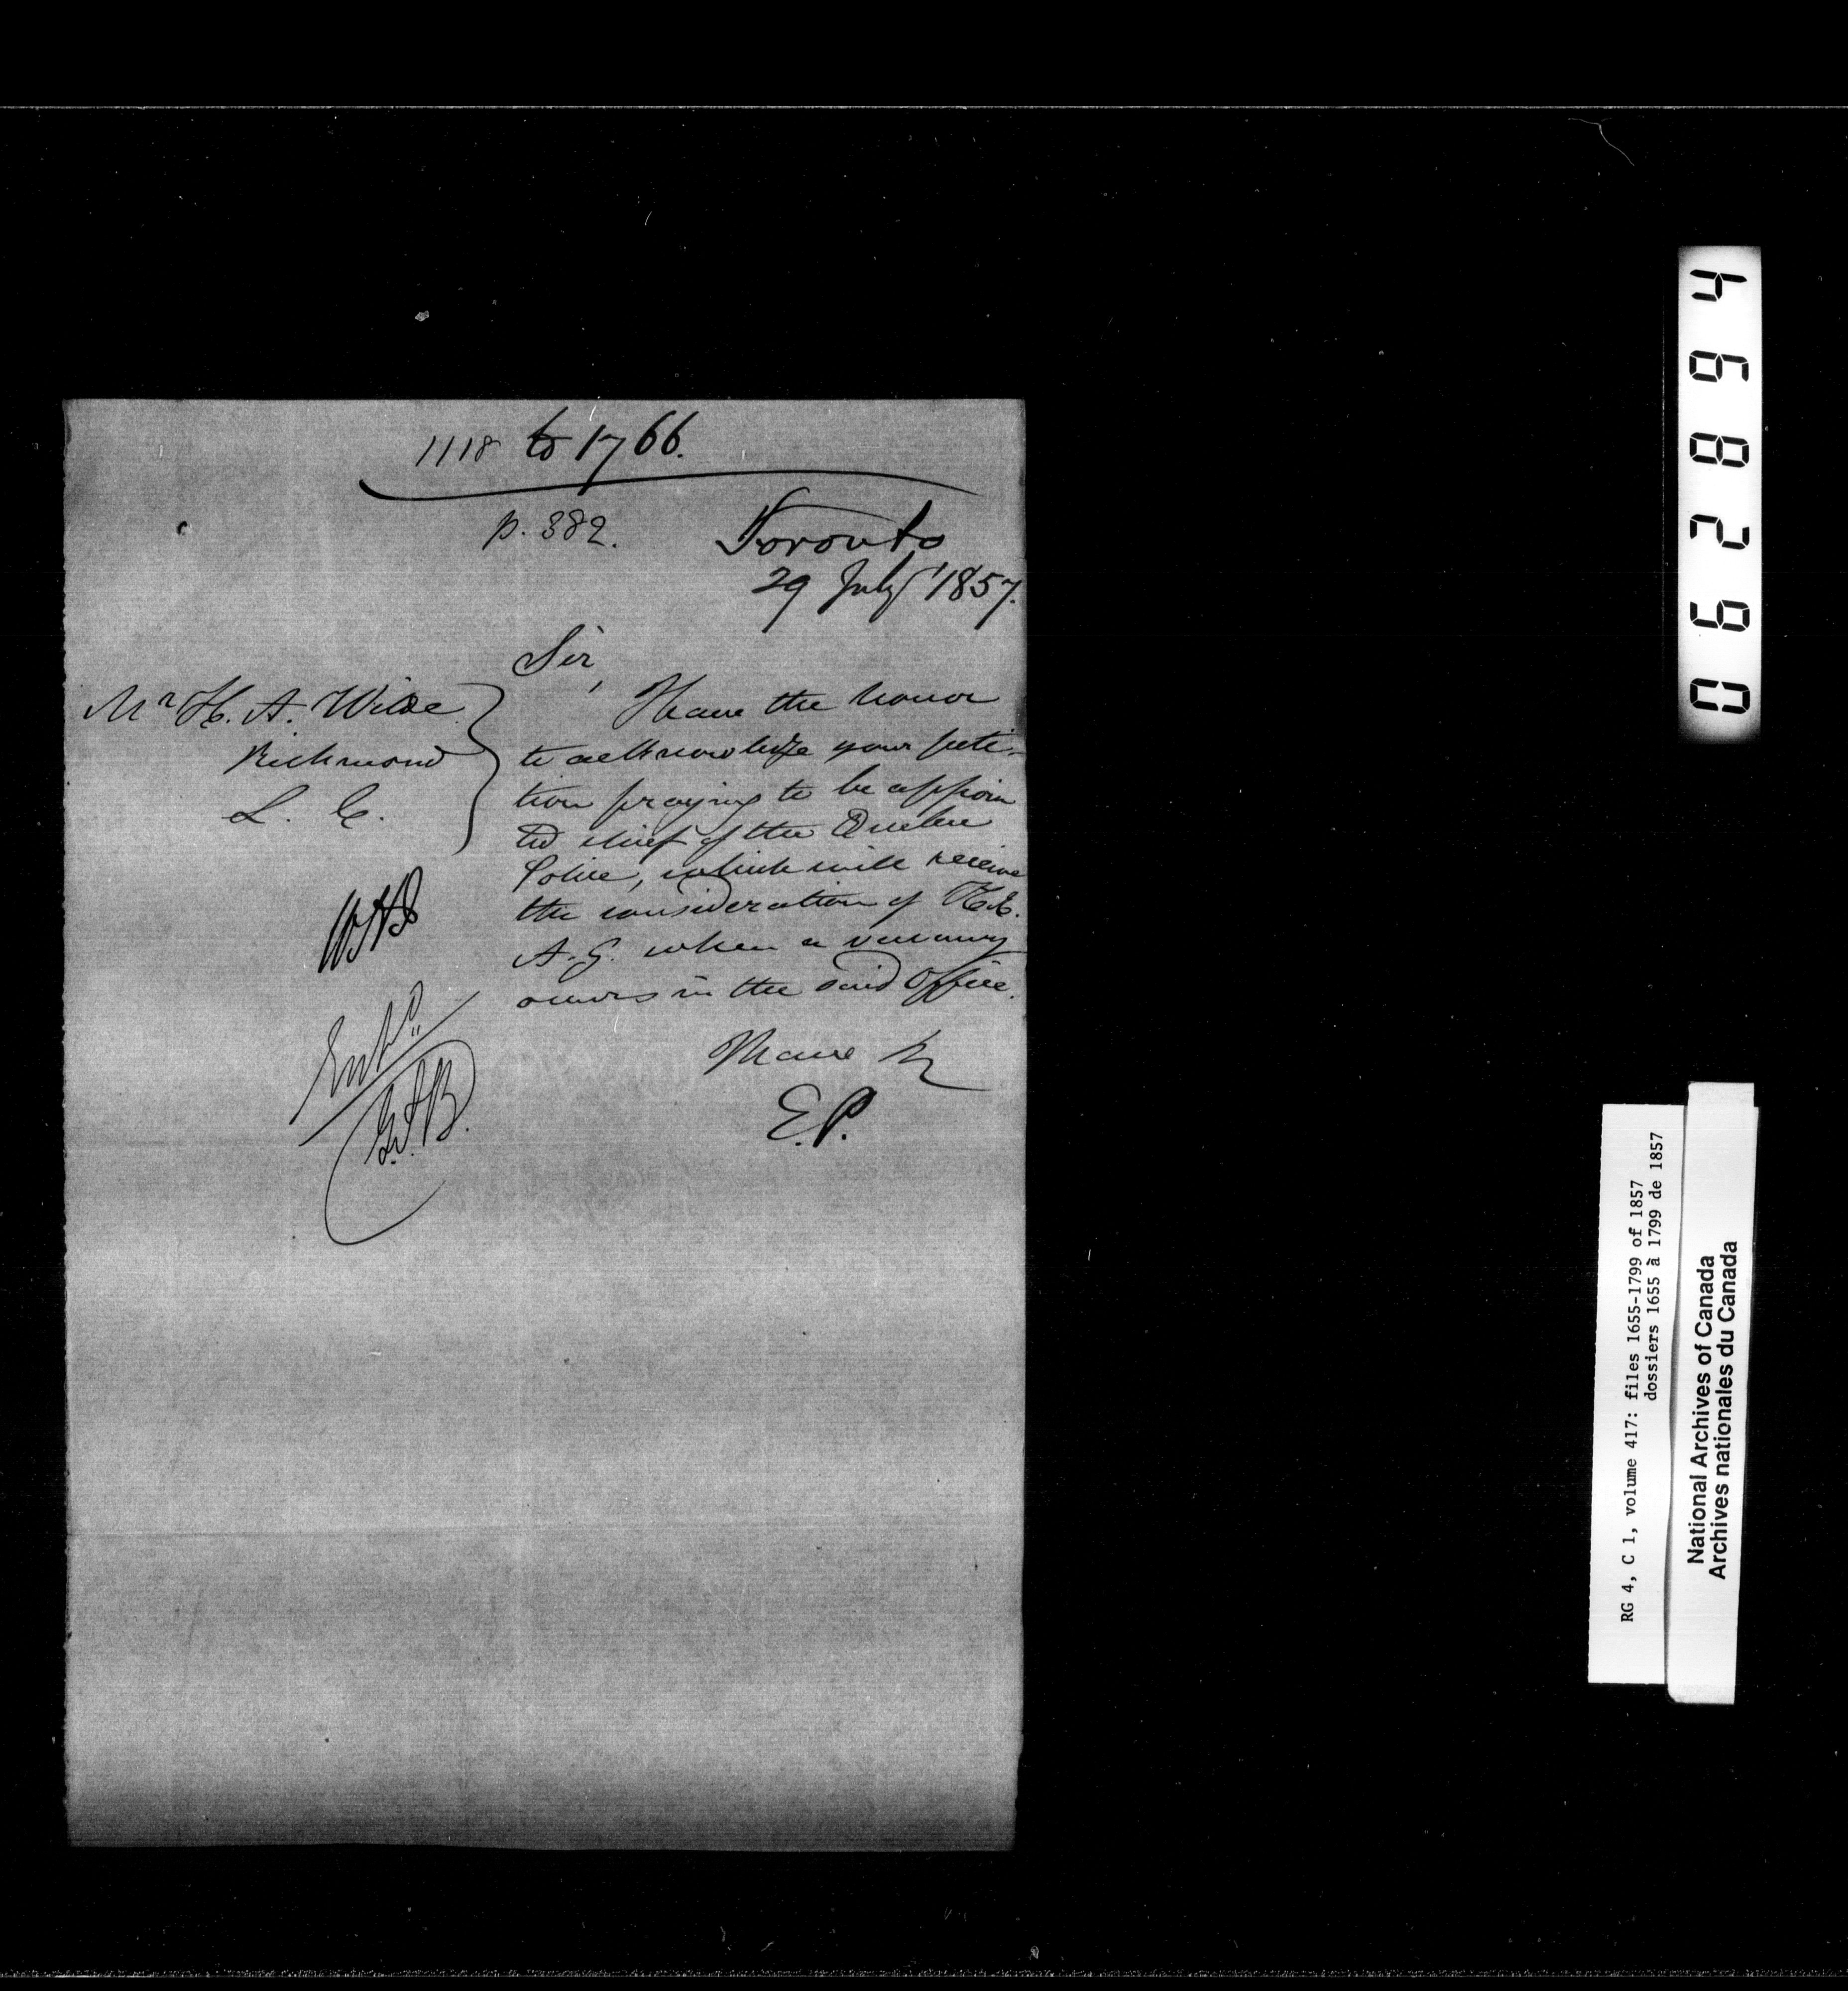 1118 to 1766.
p. 382.
Toronto
29 July 1857.
Sir,
Mr H. A. Wilde
Richmond
L. C.
I have the honor
to acknowledge your peti-
tion praying to be appoin
ted chief of the Quebec
Police, which will receive
the consideration of H. E.
A. G. when a vacancy
occurs in the said Office.
I have &c
E. P.
WHB
Entd
G.J.B.
062894
RG 4, C 1, volume 417: files 1655-1799 of 1857
dossiers 1655 à 1799 de 1857
National Archives of Canada
Archives nationales du Canada